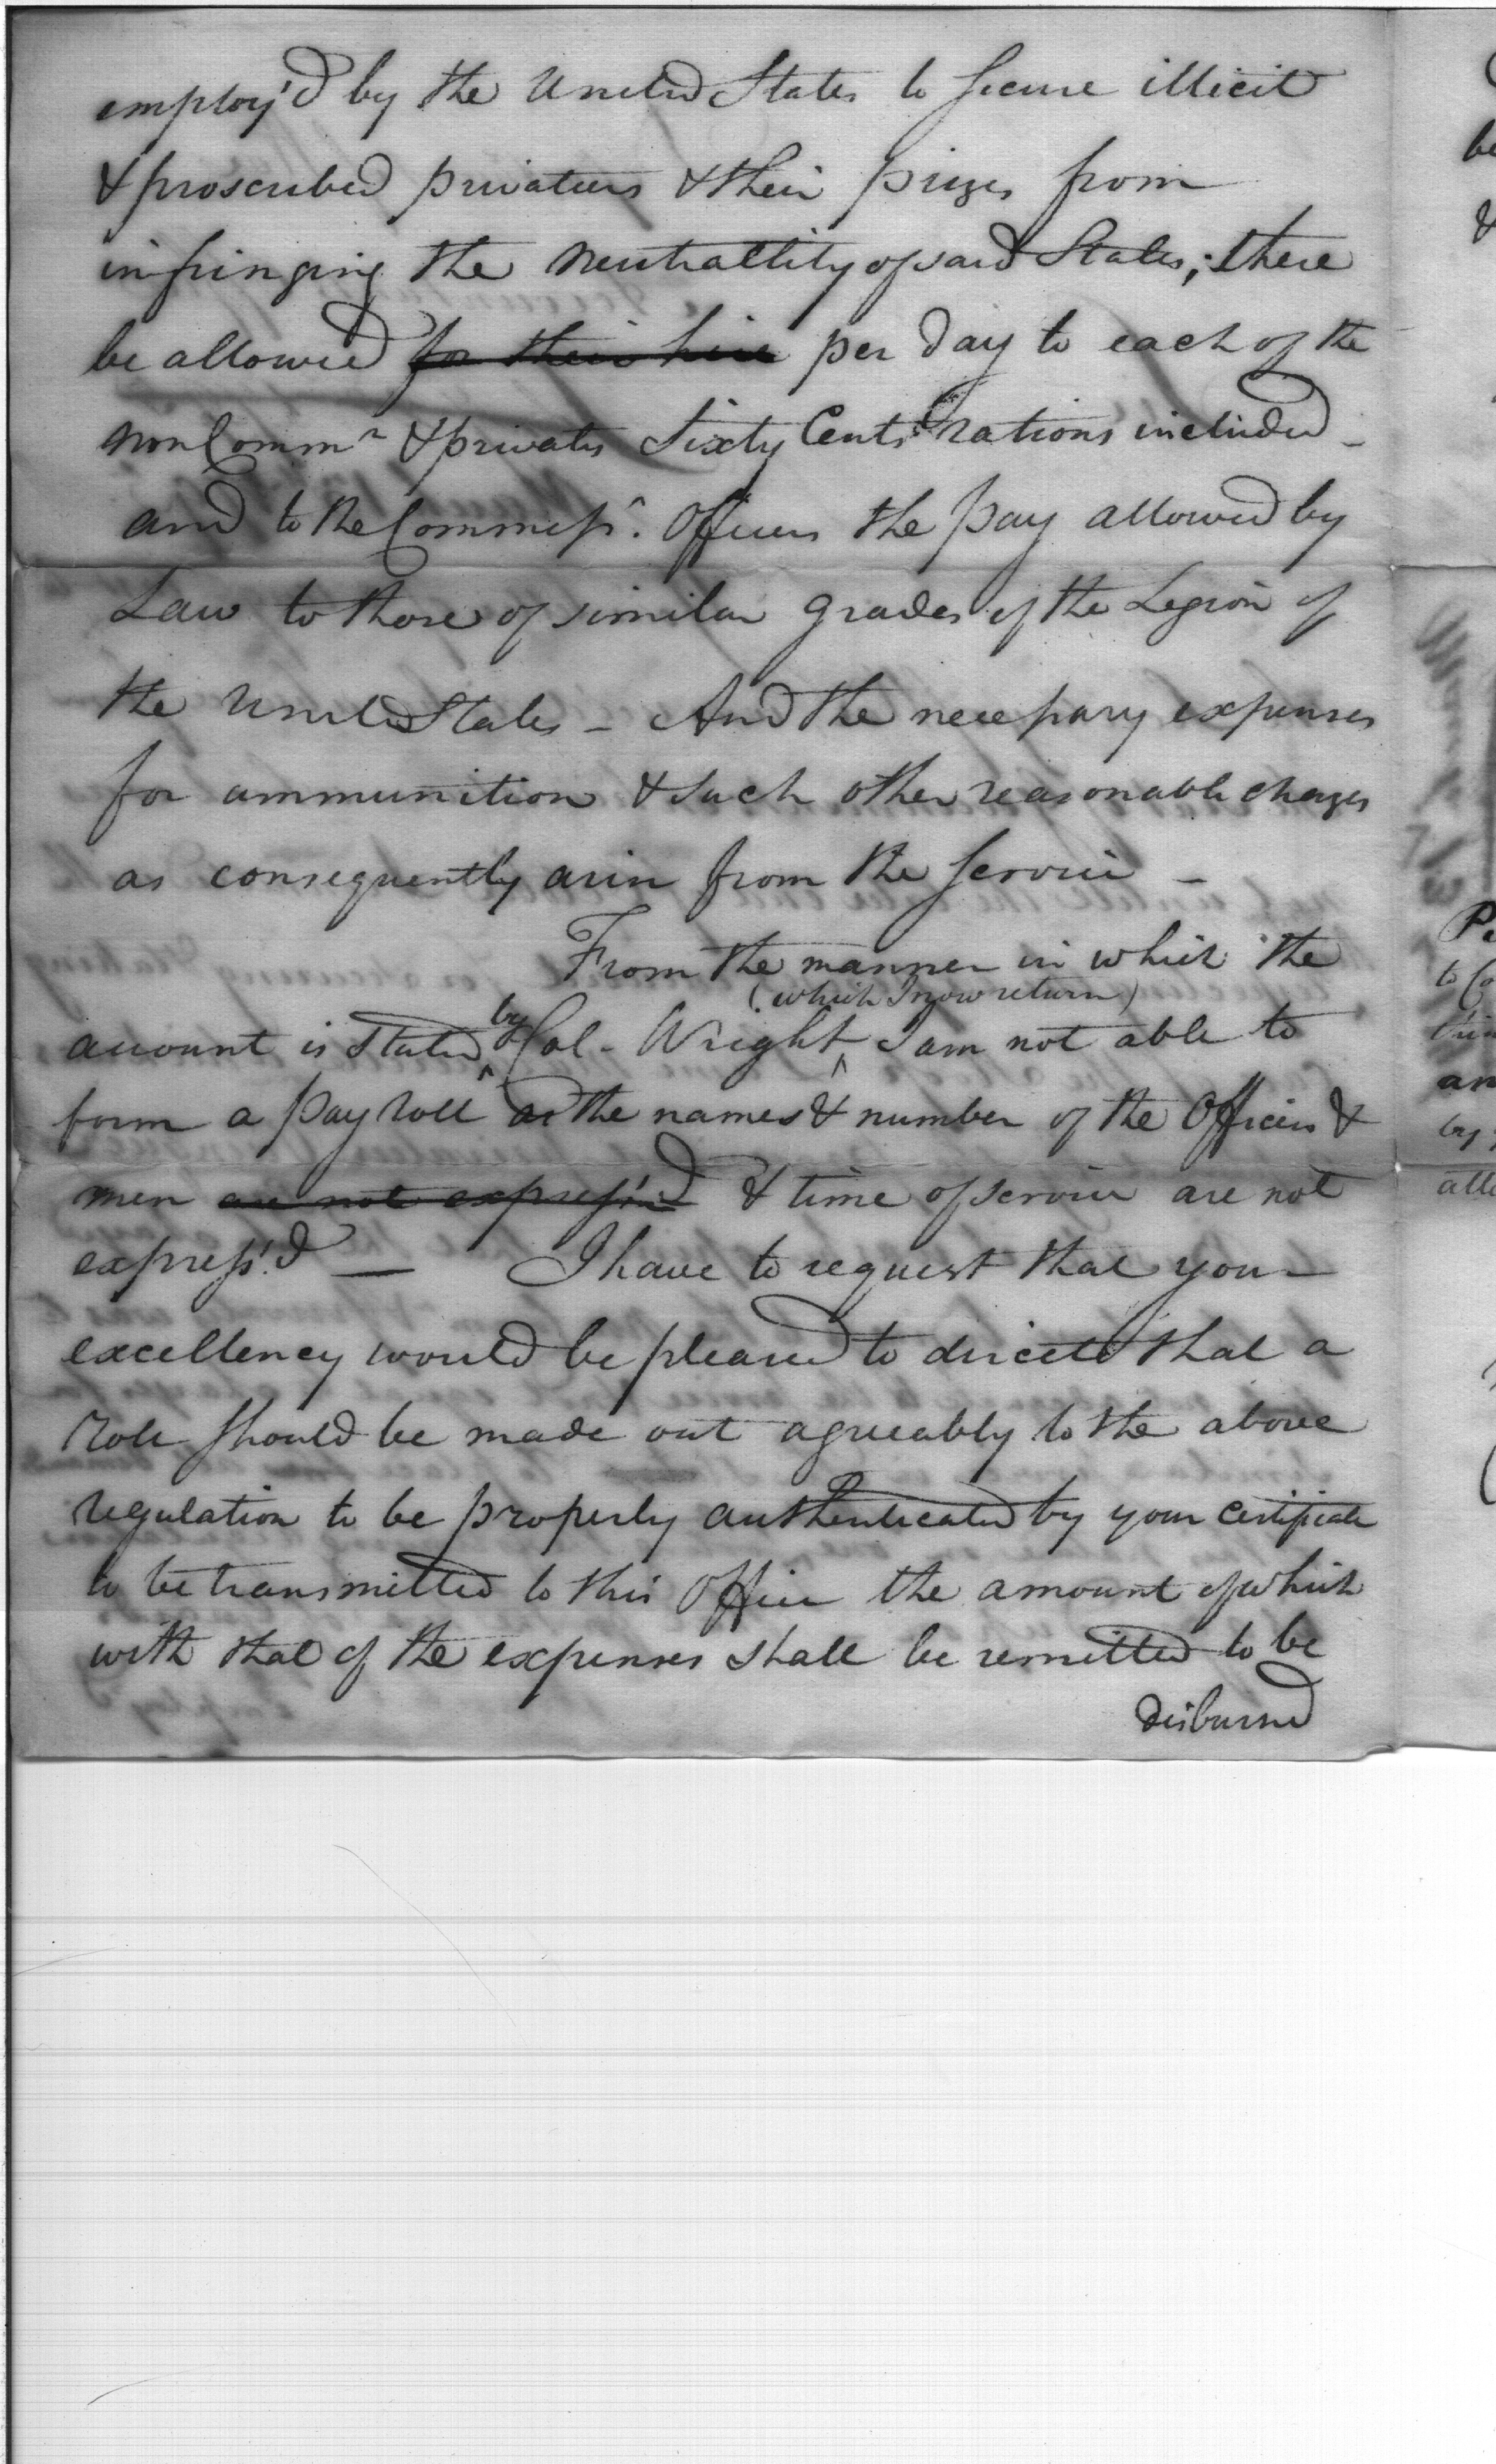 employ'd by the United States to secure illicit
& proscribed privateers & their prizes from
infringing the neutrallity of said States; there
be allowed for their hire per day to each of the
non Commn & privates Sixty Cents rations included –
and to the Commissd. Officers the pay allowed by
Law to those of similar grades of the Legion of
the United States – And the necessary expenses
for ammunition & such other reasonable charges
as consequently arise from the service –
From the manner in which the
(which I now return)
account is stated by Col. Wright I am not able to
form a pay roll as the names & number of the Officers &
men are not express'd & time of service are not
express'd — I have to request that your
excellency would be pleased to direct that a
role should be made out agreeably to the above
regulation to be properly authenticated by your certificate
to be transmitted to this Office the amount of which
with that of the expenses shall be remitted to be
disbursed
be
&
to Co
an
by